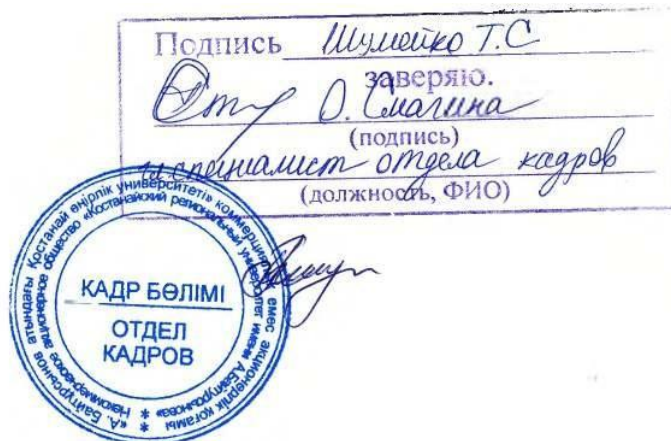 Подпись Шумейко Т.С
заверяю.
О. Смагина
(подпись)
гл специалист отдела кадров
(должность, ФИО)
«А. Байтұрсынов атындағы Қостанай өңірлік университеті» коммерциялық емес акционерлік қоғамы *
Некоммерческое акционерное общество «Костанайский региональный университет имени А.Байтурсынова» *
КАДР БӨЛІМІ
ОТДЕЛ
КАДРОВ